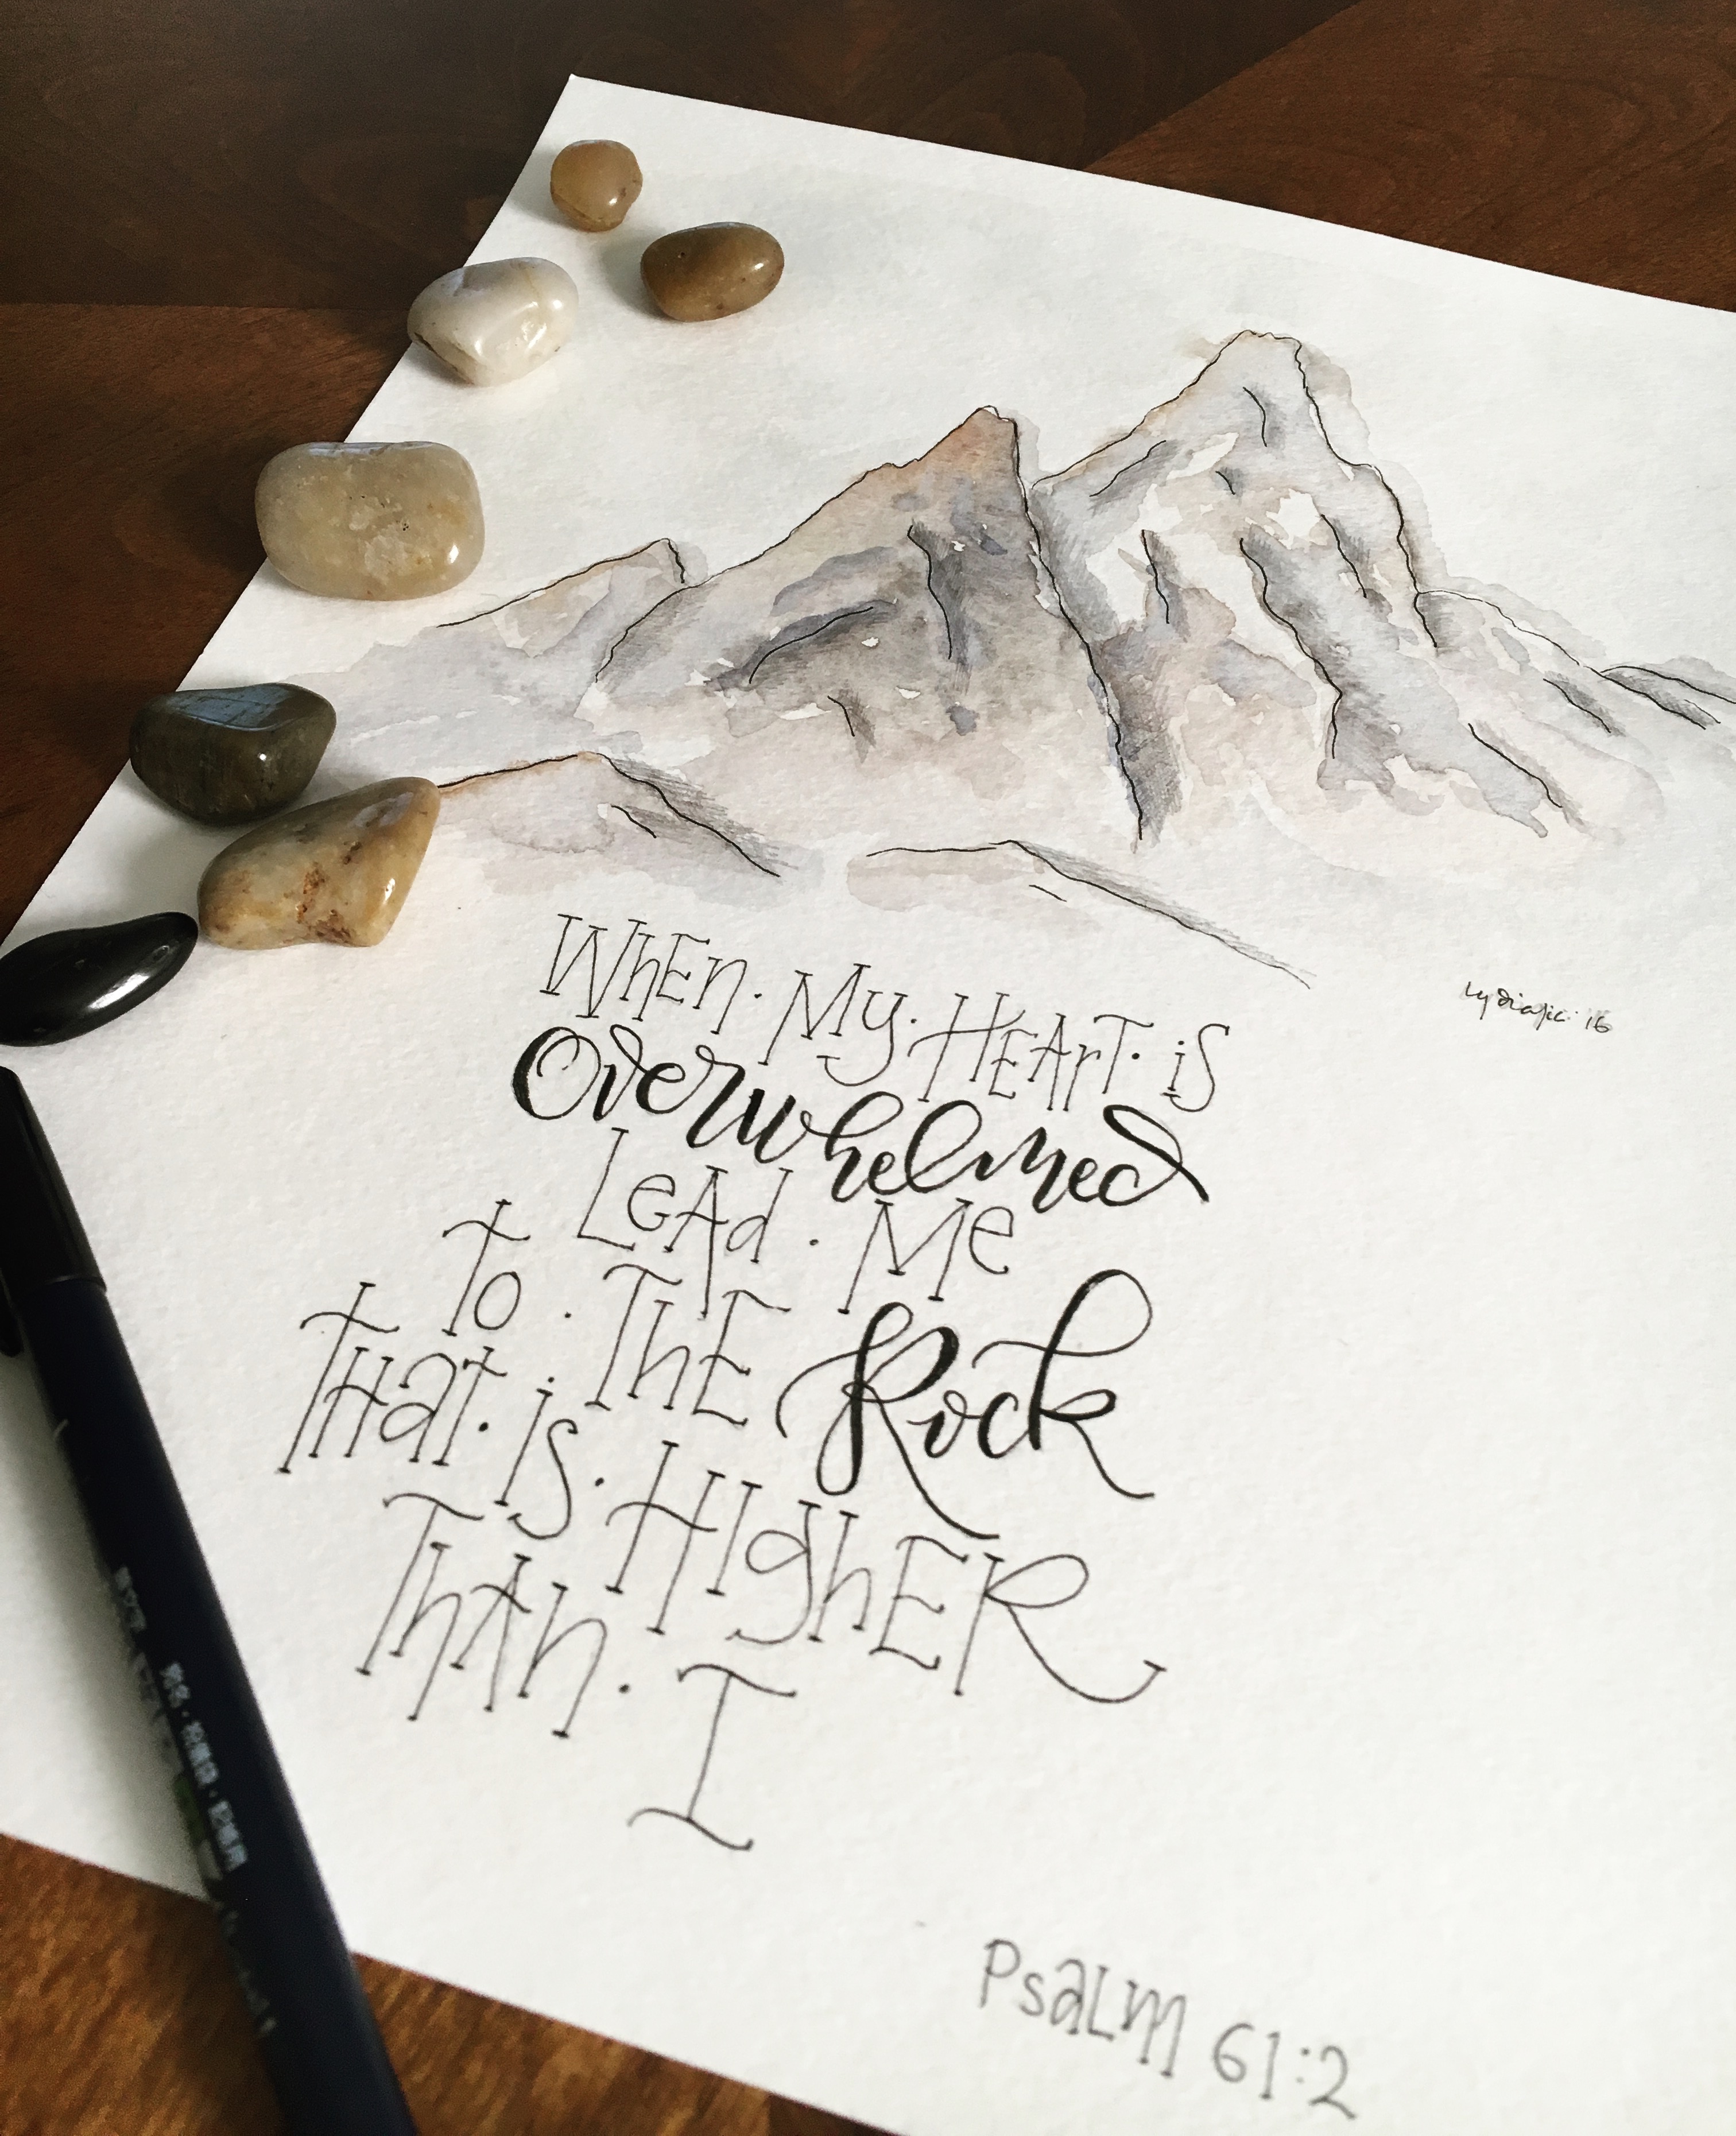 WhEn · My · HEArT · iS
Overwhelmed
LeAd · Me
To · ThE Rock
THat · is · HIghER
ThAn · I
PsaLm 61:2